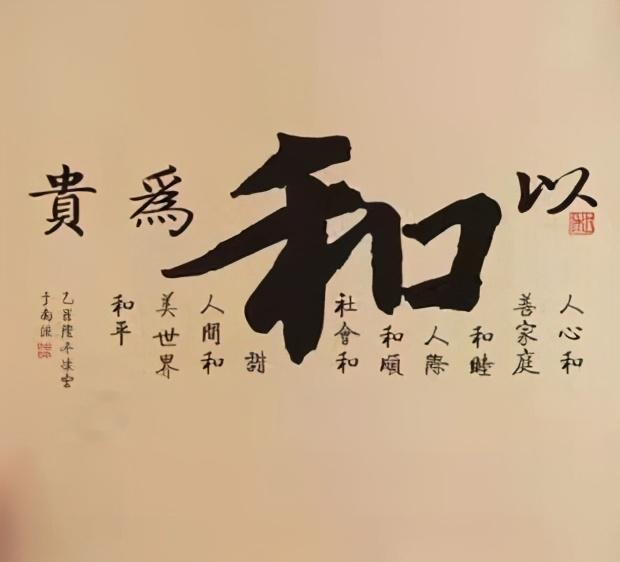 以和爲貴
人心和
善家庭
和睦
人際
和順
社會和
甜
人間和
美世界
和平
乙隆冬
于南